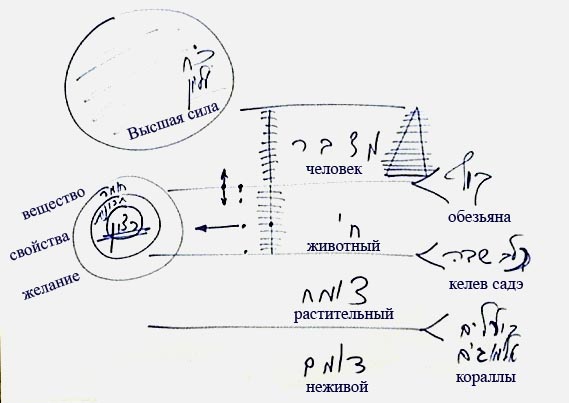 כח
עליון
Высшая сила
מדבר
человек
קוף
обезьяна
вещество
свойства
желание
חומר
תכונות
רצון
חי
животный
כלב שדה
келев садэ
צומח
растительный
אלמוגים
кораллы
דומם
неживой